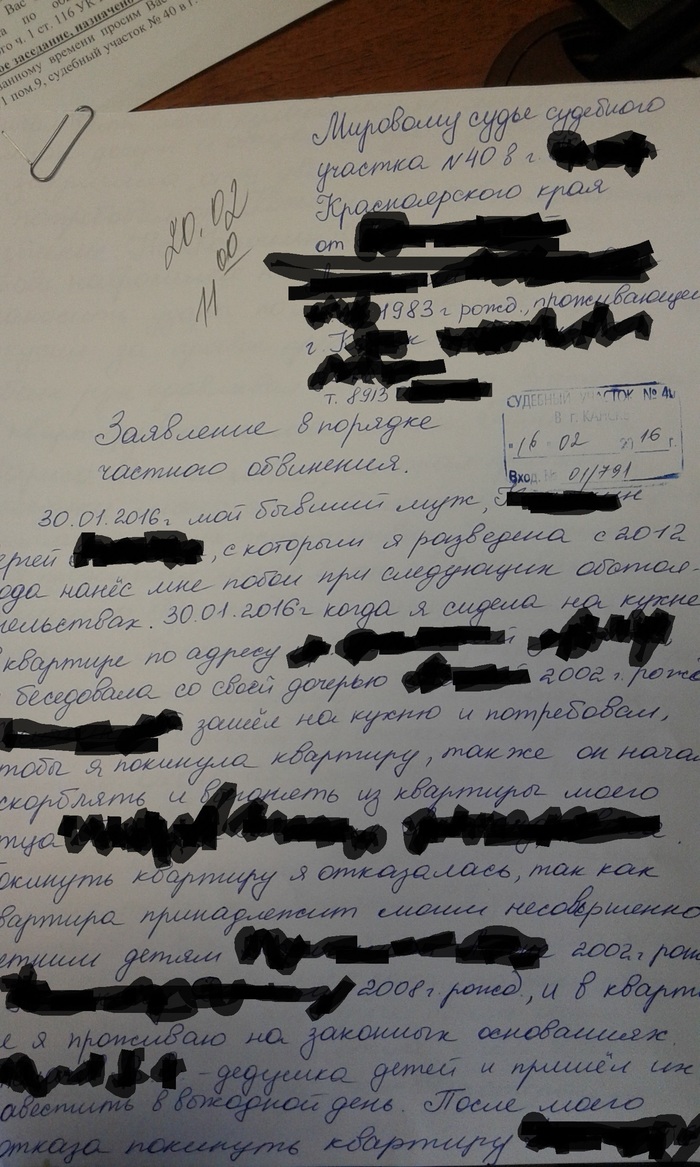 Вас
по об
ого ч. 1 ст. 116 УК
ое заседание, назначено
занному времени просим Вас
1 пом.9, судебный участок № 40 в г.
Мировому судье судебного
участка N40 в г.
Красноярского края
от
20.02
11 00
1983 г рожд., проживающей
г. К к
т. 8913
СУДЕБНЫЙ УЧАСТОК № 40
В г. КАНСКЕ
"16" 02 2016 г.
Вход. № 01/791
Заявление в порядке
частного обвинения.
30.01.2016г мой бывший муж,
ергей , с которым я разведена с 2012
ода нанёс мне побои при следующих обстоя-
тельствах. 30.01.2016г когда я сидела на кухне
в квартире по адресу
беседовала со своей дочерью 2002 г. рожд
зашёл на кухню и потребовал,
тобы я покинула квартиру, также он начал
скорблять и выгонять из квартиры моего
тца
окинуть квартиру я отказалась, так как
вартира принадлежит моим несовершенно
етним детям 2002г. рожд
2008г. рожд., и в кварт
е я проживаю на законных основаниях.
-дедушка детей и пришёл их
авестить в выходной день. После моего
отказа покинуть квартиру